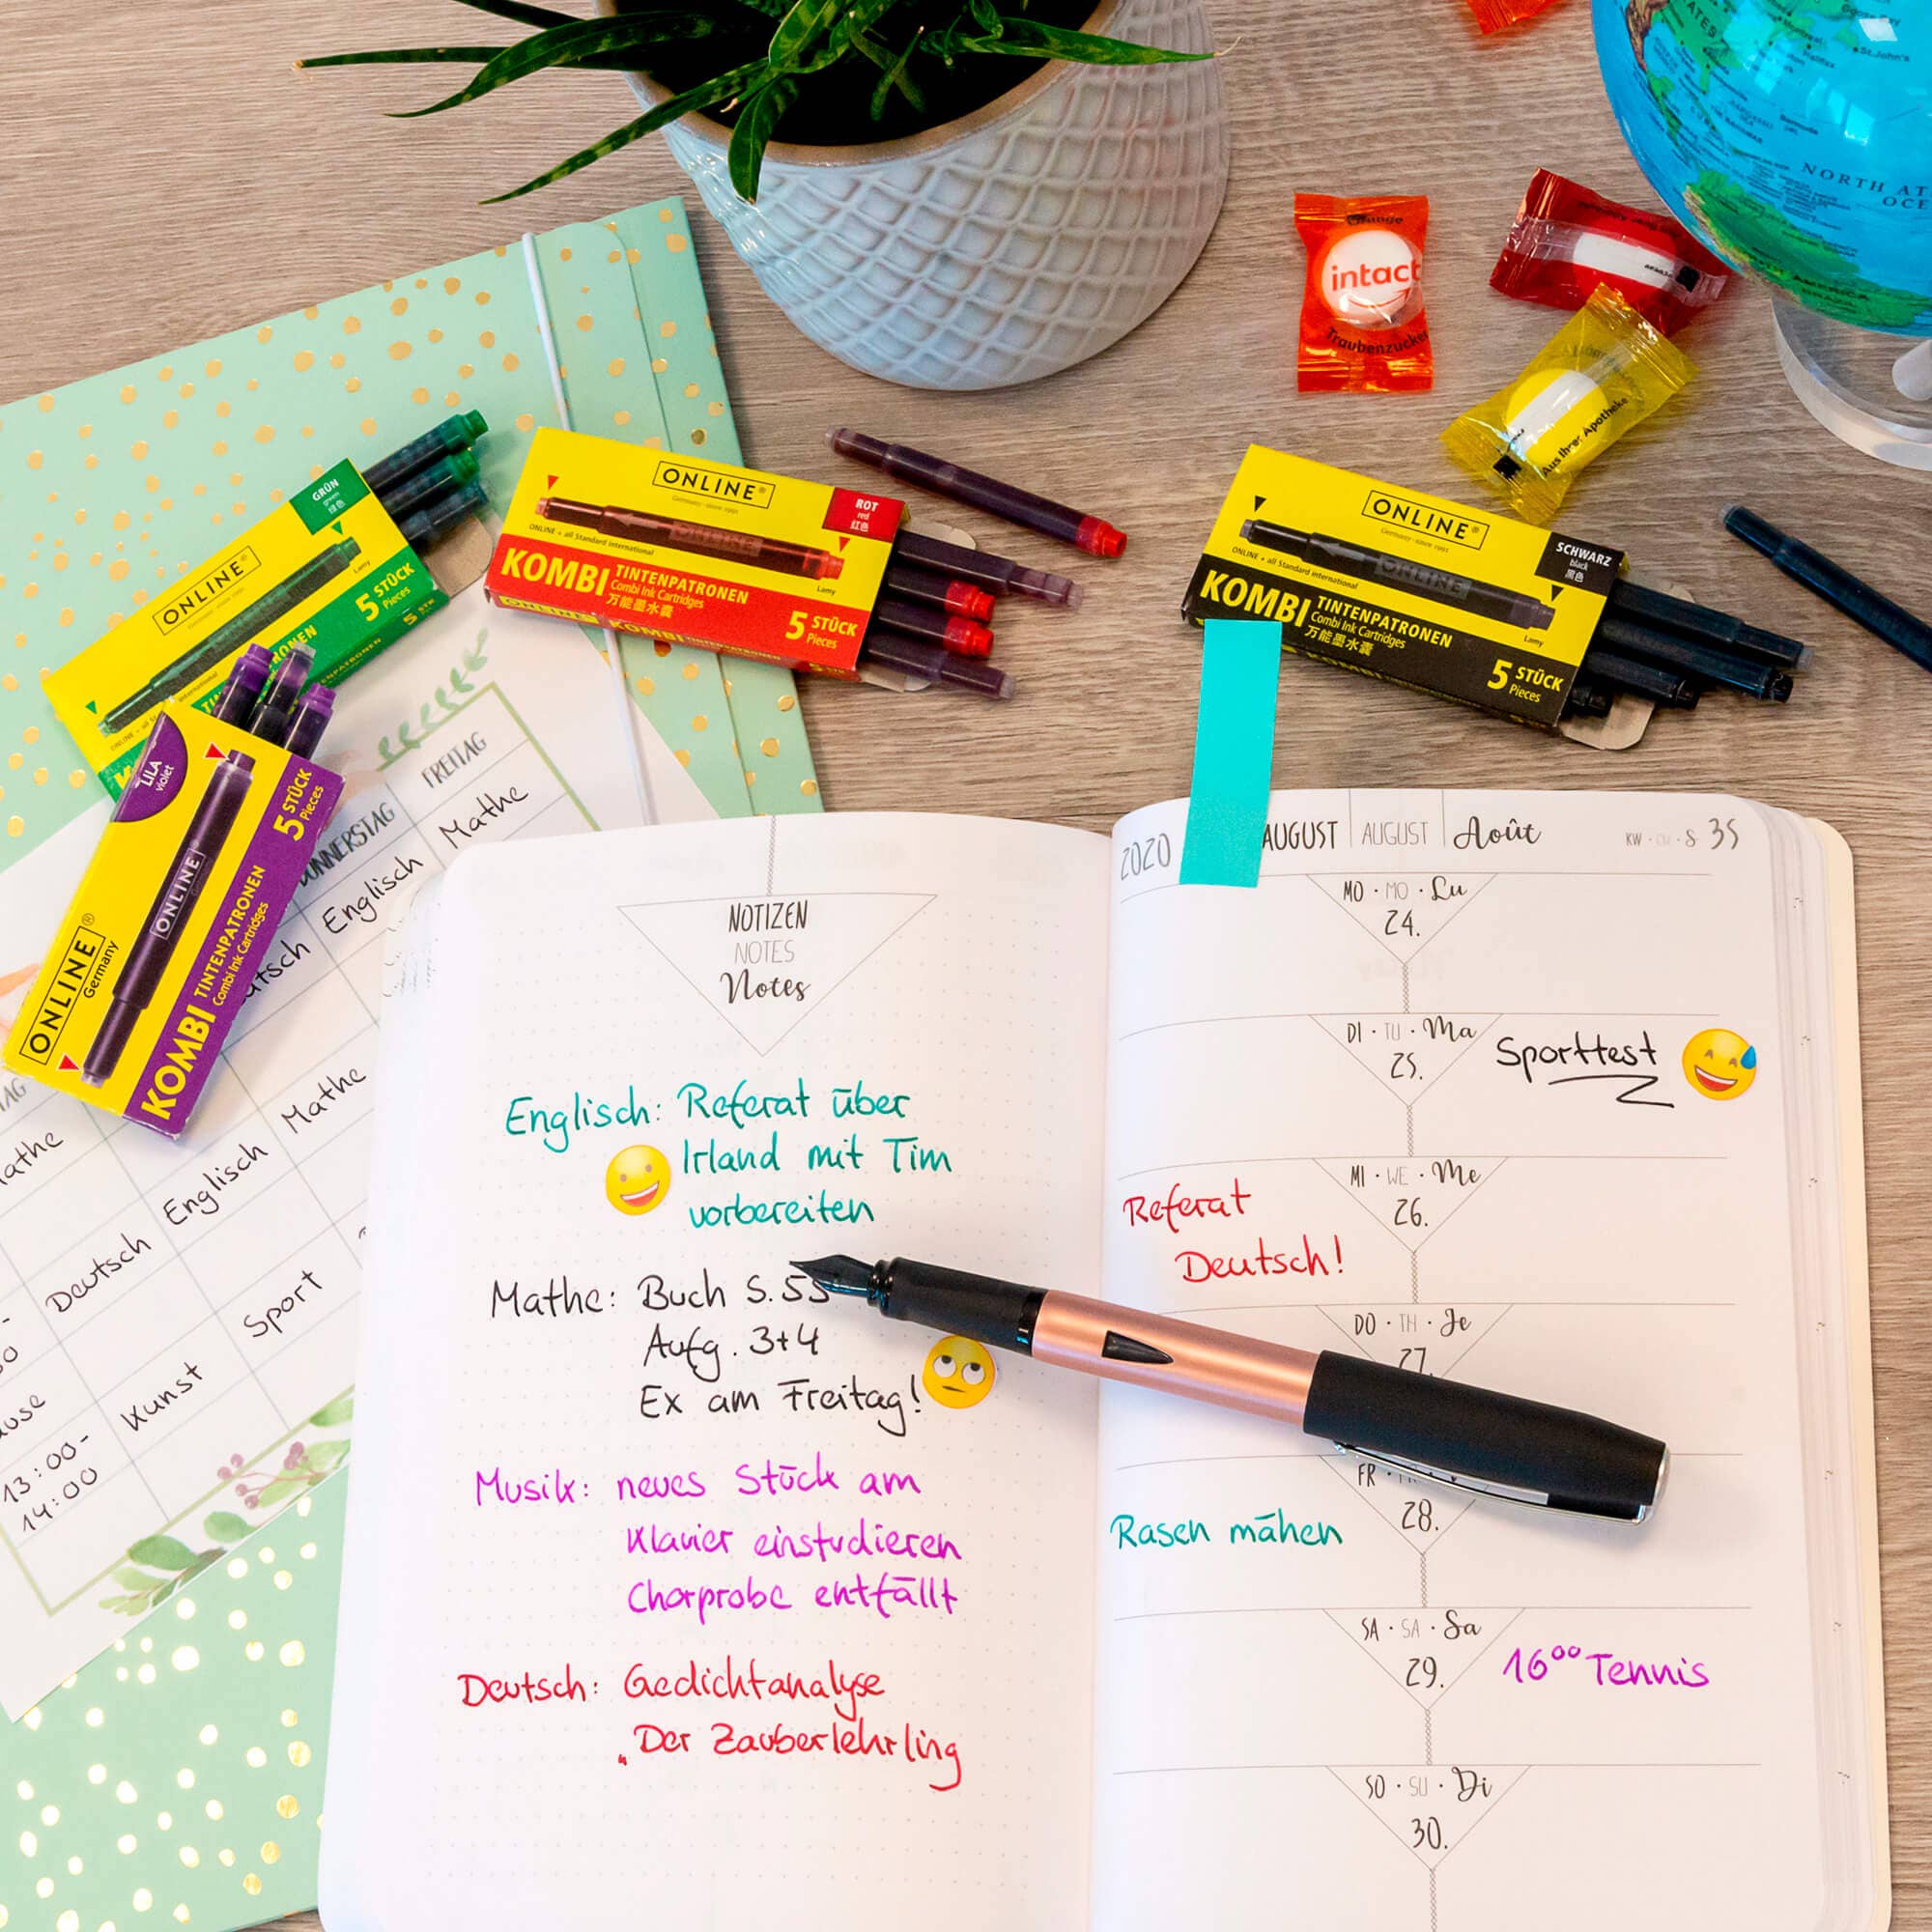 NORTH AT
OCE
Bermuda
St.John's
Halifax
Orange
intact
Traubenzucker
Aus Ihrer Apotheke
GRÜN
green
绿色
ONLINE®
Lamy
5 STÜCK
Pieces
ONLINE®
Germany · since 1991
ROT
red
红色
ONLINE + all Standard international
Lamy
KOMBI TINTENPATRONEN
Combi Ink Cartridges
万能墨水囊
5 STÜCK
Pieces
ONLINE®
Germany · since 1991
SCHWARZ
black
黑色
ONLINE + all Standard international
Lamy
KOMBI TINTENPATRONEN
Combi Ink Cartridges
万能墨水囊
5 STÜCK
Pieces
LILA
violet
ONLINE®
Germany
ONLINE
KOMBI TINTENPATRONEN
Combi Ink Cartridges
5 STÜCK
Pieces
FREITAG
Mathe
Englisch
Mathe
Englisch
Deutsch
Sport
Kunst
13:00-
14:00
NOTIZEN
NOTES
Notes
Englisch: Referat über
Irland mit Tim
vorbereiten
Mathe: Buch S. 55
Aufg. 3+4
Ex am Freitag!
Musik: neues Stück am
Klavier einstudieren
Chorprobe entfällt
Deutsch: Gedichtanalyse
„Der Zauberlehrling
2020
AUGUST | AUGUST | Août
KW · CW · S 35
MO · MO · Lu
24.
DI · TU · Ma
25.
Sporttest
MI · WE · Me
26.
Referat
Deutsch!
DO · TH · Je
27.
FR
28.
Rasen mähen
SA · SA · Sa
29.
16⁰⁰ Tennis
SO · SU · Di
30.